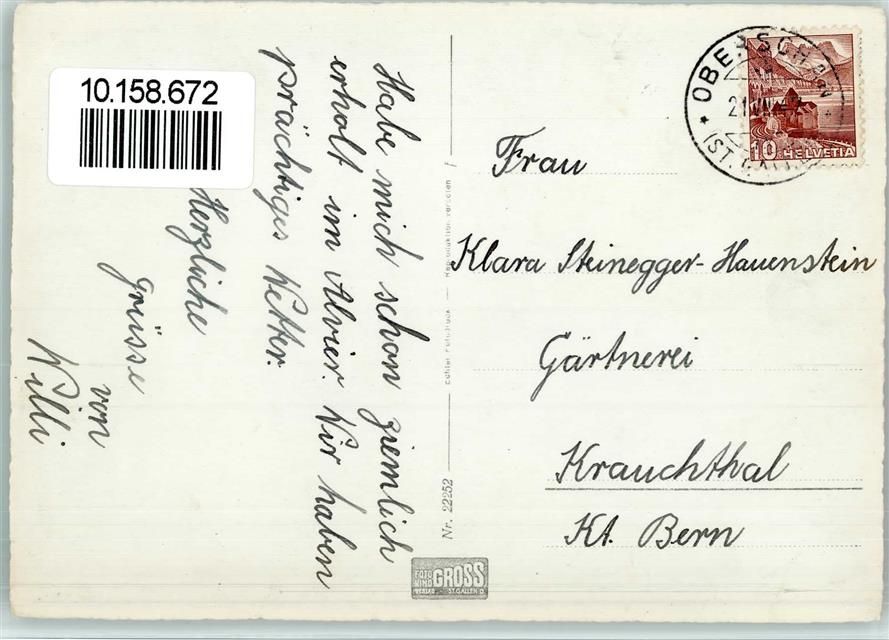 10.158.672
Habe mich schon ziemlich
erholt im Alvier. Wir haben
prächtiges Wetter.
Herzliche
Grüsse
von
Willi
Nr. 22252
Echter Fotodruck — Reproduktion verboten
FOTO
KINO GROSS
VERLAG - ST. GALLEN O
OBERSCHAN
21
(ST.
10 HELVETIA
Frau
Klara Steinegger-Hauenstein
Gärtnerei
Krauchthal
Kt. Bern